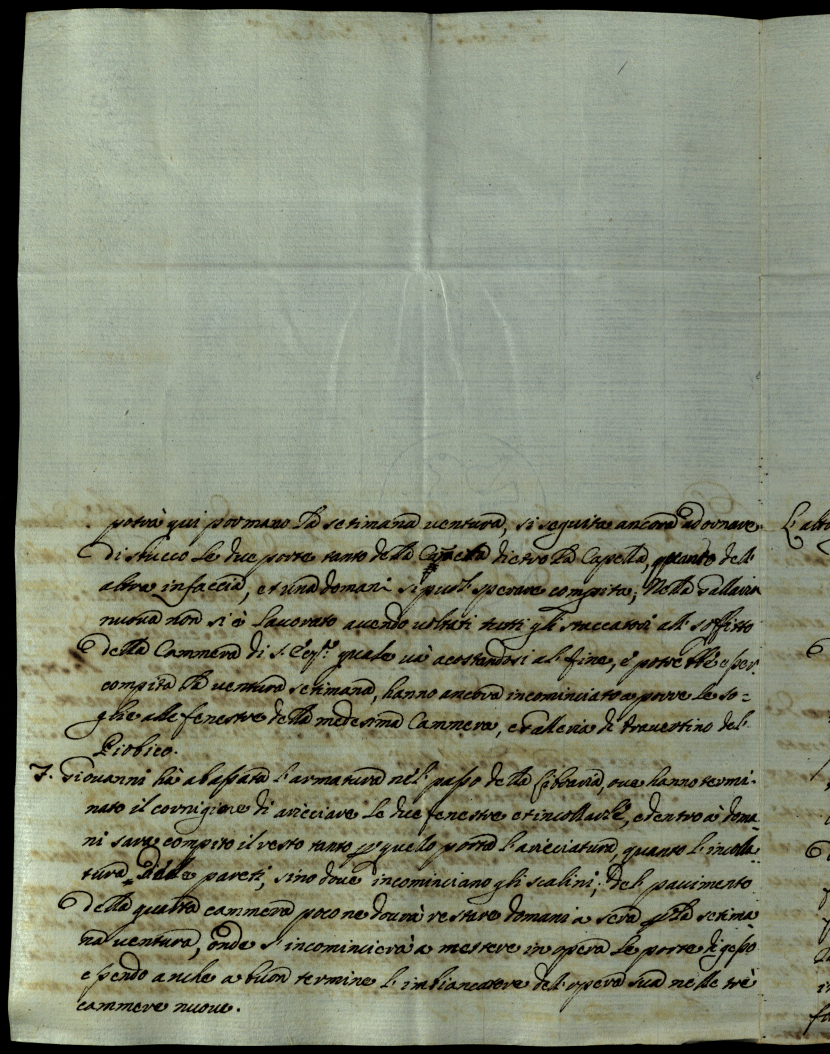 potrà qui por mano la setimana ventura, si seguita ancora ad ornare
di stucco le due porte tanto della dietro la Capella, quanto dell
altra in faccia, et una domani si può sperare compita; Nella Gallaria
nuova non si è lavorato avendo voltati tutti gli staccatori al soffitto
della Cammera di S. Ecc.ª quale và acostandosi al fine, e potrebbe esser
compita la ventura setimana, hanno ancora incominciato a porre le so=
glie alle fenestre della medesima Cammera, e Galleria di travertino del
Piobico.
7. Giovanni hà abassata l'armatura nel passo della Libraria, ove hanno termi-
nato il cornigione di aricciare le due fenestre et incollarle, e dentro à doma
ni sarà compito il resto tanto per quello porta l'aricciatura, quanto l'incolla
tura delle pareti, sino dove incominciano gli scalini; Del pavimento
della quarta cammera poco ne dovrà restare domani a sera per la setima
na ventura, onde s'incomincierà a mettere in opera le porte di gesso
essendo anche a buon termine l'imbiancatore del opera sua nelle trè
cammere nuove.
L'altr